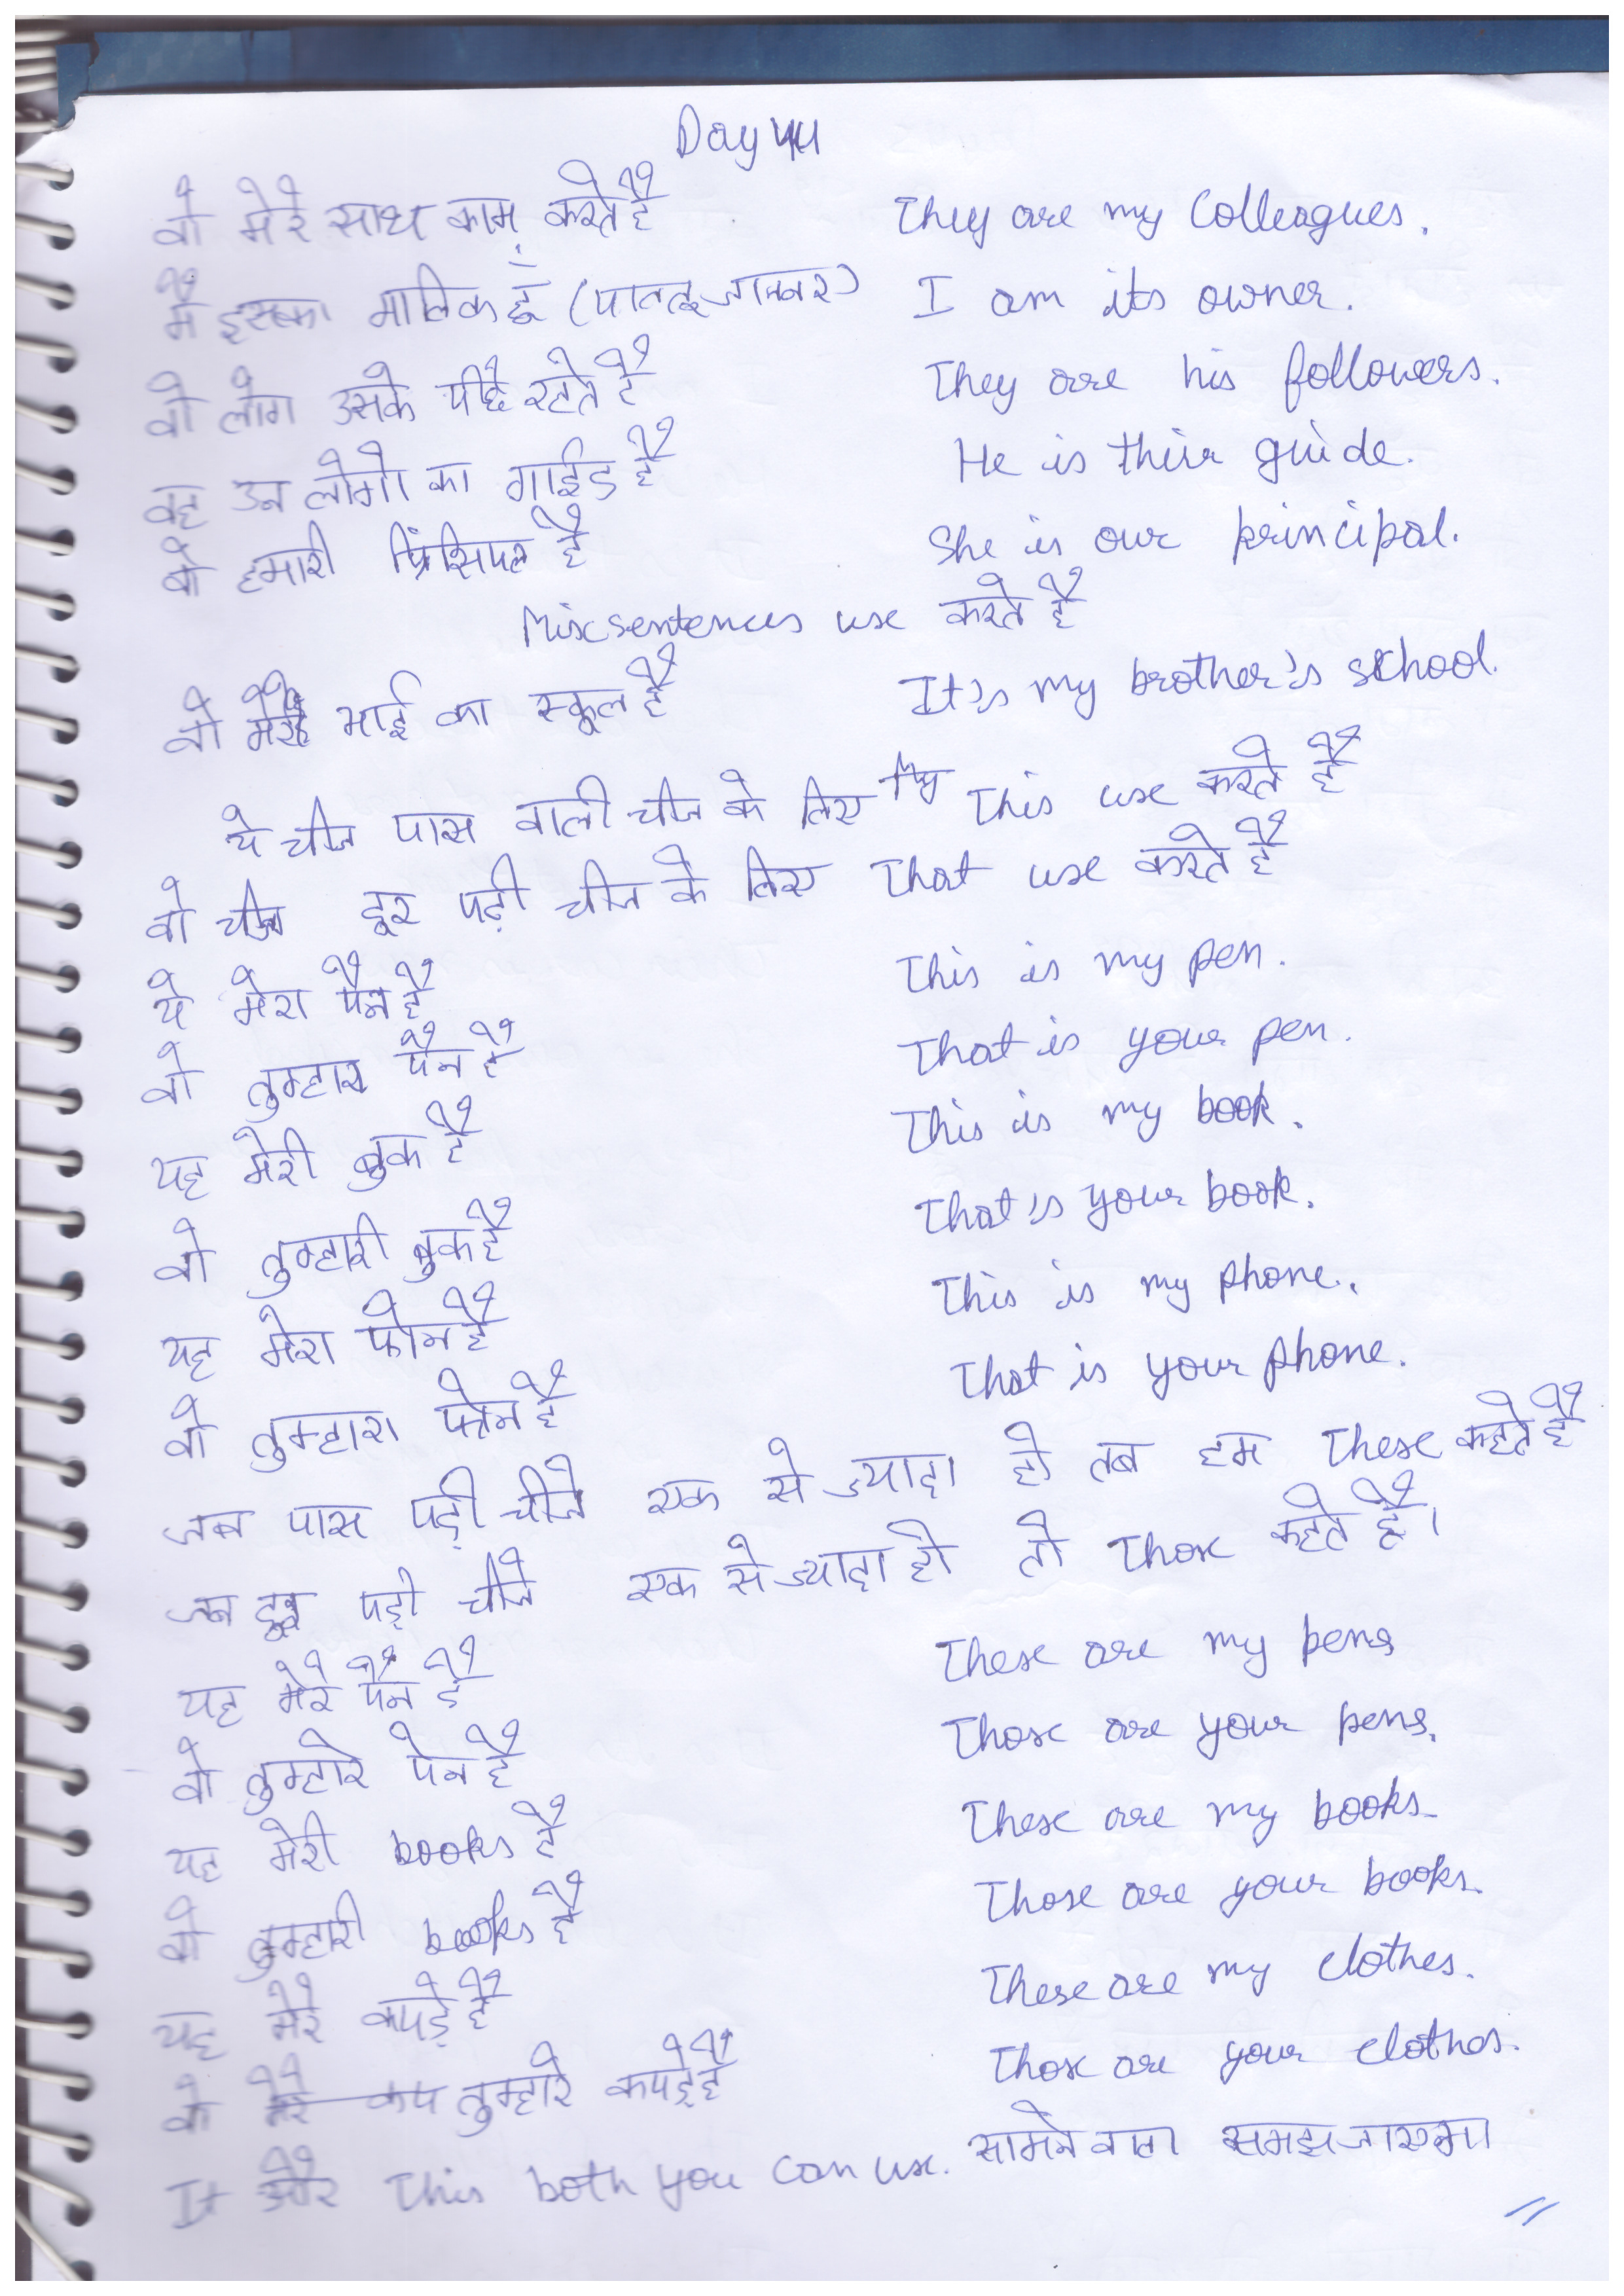 Day 44
वो मेरे साथ काम करते है They are my Colleagues.
मै इसका मालिक हूँ (पालतू जानवर) I am its owner.
वो लोग उसके पीछे रहते है They are his followers.
वह उन लोगो का गाईड है He is thir guide.
वो हमारी प्रिंसिपल है She is our principal.
Misc sentences use करते है
वो मेरे भाई का स्कूल है It's my brother's school.
ये चीज पास वाली चीज के लिए This use करते है
वो चीज दूर पड़ी चीज के लिए That use करते है
ये मेरा पैन है This is my pen.
वो तुम्हारा पैन है That is your pen.
यह मेरी बुक है This is my book.
वो तुम्हारी बुक है That's your book.
यह मेरा फोन है This is my phone.
वो तुम्हारा फोन है That is your phone.
जब पास पड़ी चीजे एक से ज्यादा हो तब हम These कहते है
जब दूर पड़ी चीजे एक से ज्यादा हो तो Those कहते है।
यह मेरे पैन है These are my pens
वो तुम्हारे पेन है Those are your pens.
यह मेरी books है These are my books.
वो तुम्हारी books है Those are your books.
यह मेरे कपड़े है These are my clothes.
वो मेरे कप तुम्हारे कपड़े है Those are your clothes.
It और This both you can use. सामने वाला समझ जाएगा